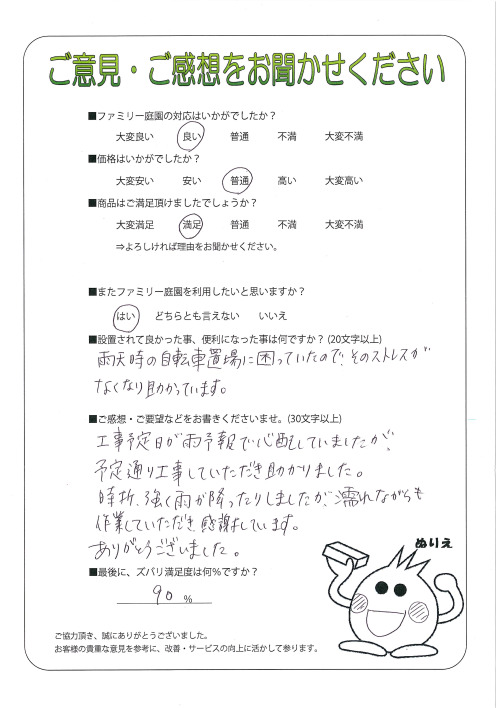 ご意見・ご感想をお聞かせください
■ファミリー庭園の対応はいかがでしたか？
大変良い 良い 普通 不満 大変不満
■価格はいかがでしたか？
大変安い 安い 普通 高い 大変高い
■商品はご満足頂けましたでしょうか？
大変満足 満足 普通 不満 大変不満
⇒よろしければ理由をお聞かせください。
■またファミリー庭園を利用したいと思いますか？
はい どちらとも言えない いいえ
■設置されて良かった事、便利になった事は何ですか？(20文字以上)
雨天時の自転車置場に困っていたので、そのストレスが
なくなり助かっています。
■ご感想・ご要望などをお書きくださいませ。(30文字以上)
工事予定日が雨予報で心配していましたが、
予定通り工事していただき助かりました。
時折、強く雨が降ったりしましたが、濡れながらも
作業していただき感謝しています。
ありがとうございました。
■最後に、ズバリ満足度は何％ですか？
90 %
ぬりえ
ご協力頂き、誠にありがとうございました。
お客様の貴重な意見を参考に、改善・サービスの向上に活かして参ります。